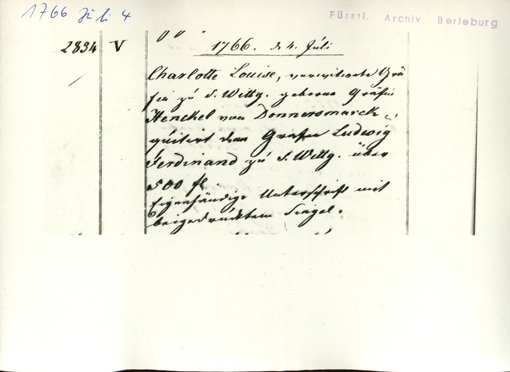 1766 Juli 4
Fürstl. Archiv Berleburg
2834 V
1766. d. 4. Juli
Charlotte Louise, verwitwete Grä-
fin zu S. Wittg. geborne Gräfin
Henckel von Donnersmarck
quitirt dem Grafen Ludwig
Ferdinand zu S. Wittg. über
500 fl
Eigenhändige Unterschrift mit
beigedrücktem Siegel.